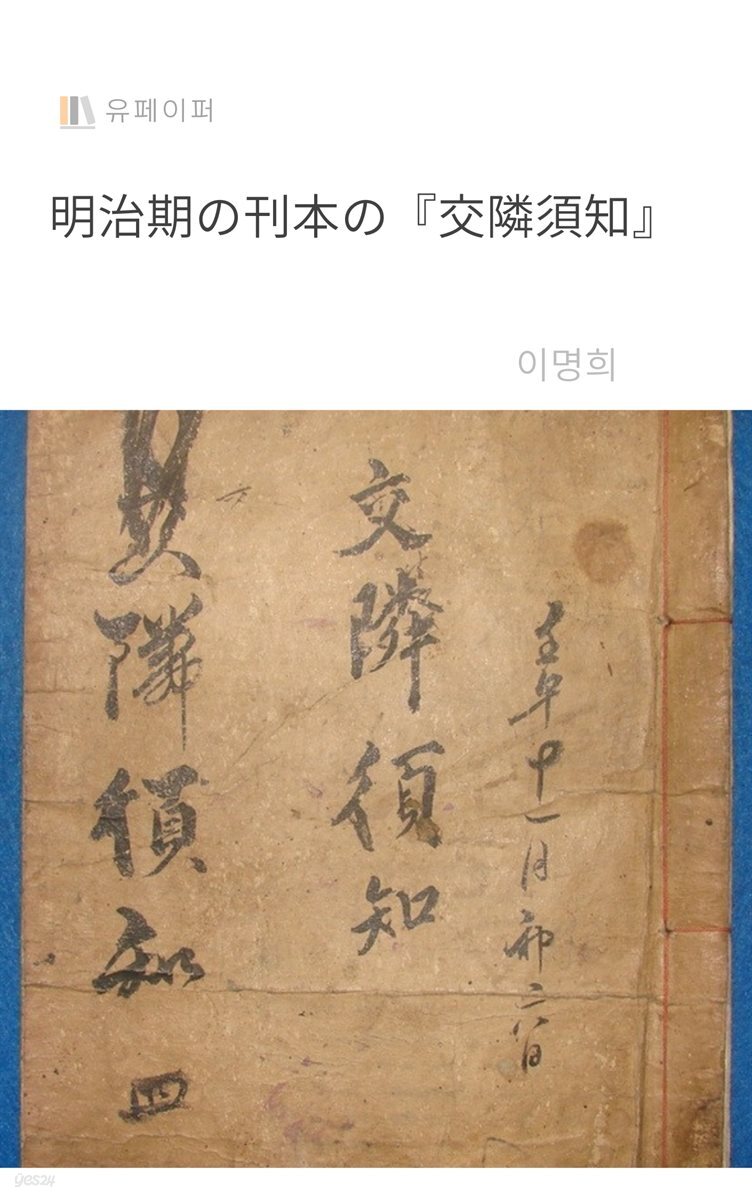 유페이퍼
明治期の刊本の『交隣須知』
이명희
壬午十一月
交隣須知
交隣須知 四
yes24